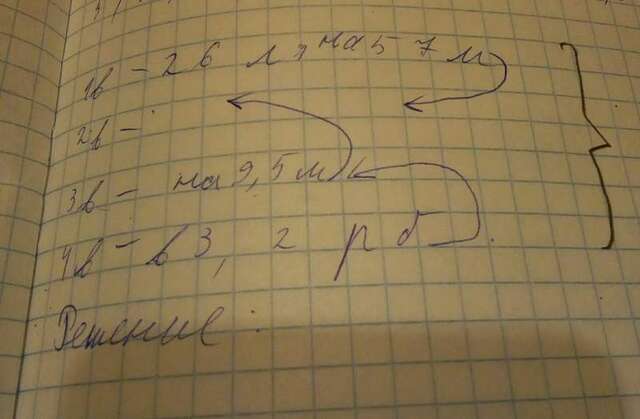 1в - 26 м, на 5 7 м
2в -
3в - на 9,5 м
4в - в 3, 2 р б
Решение: